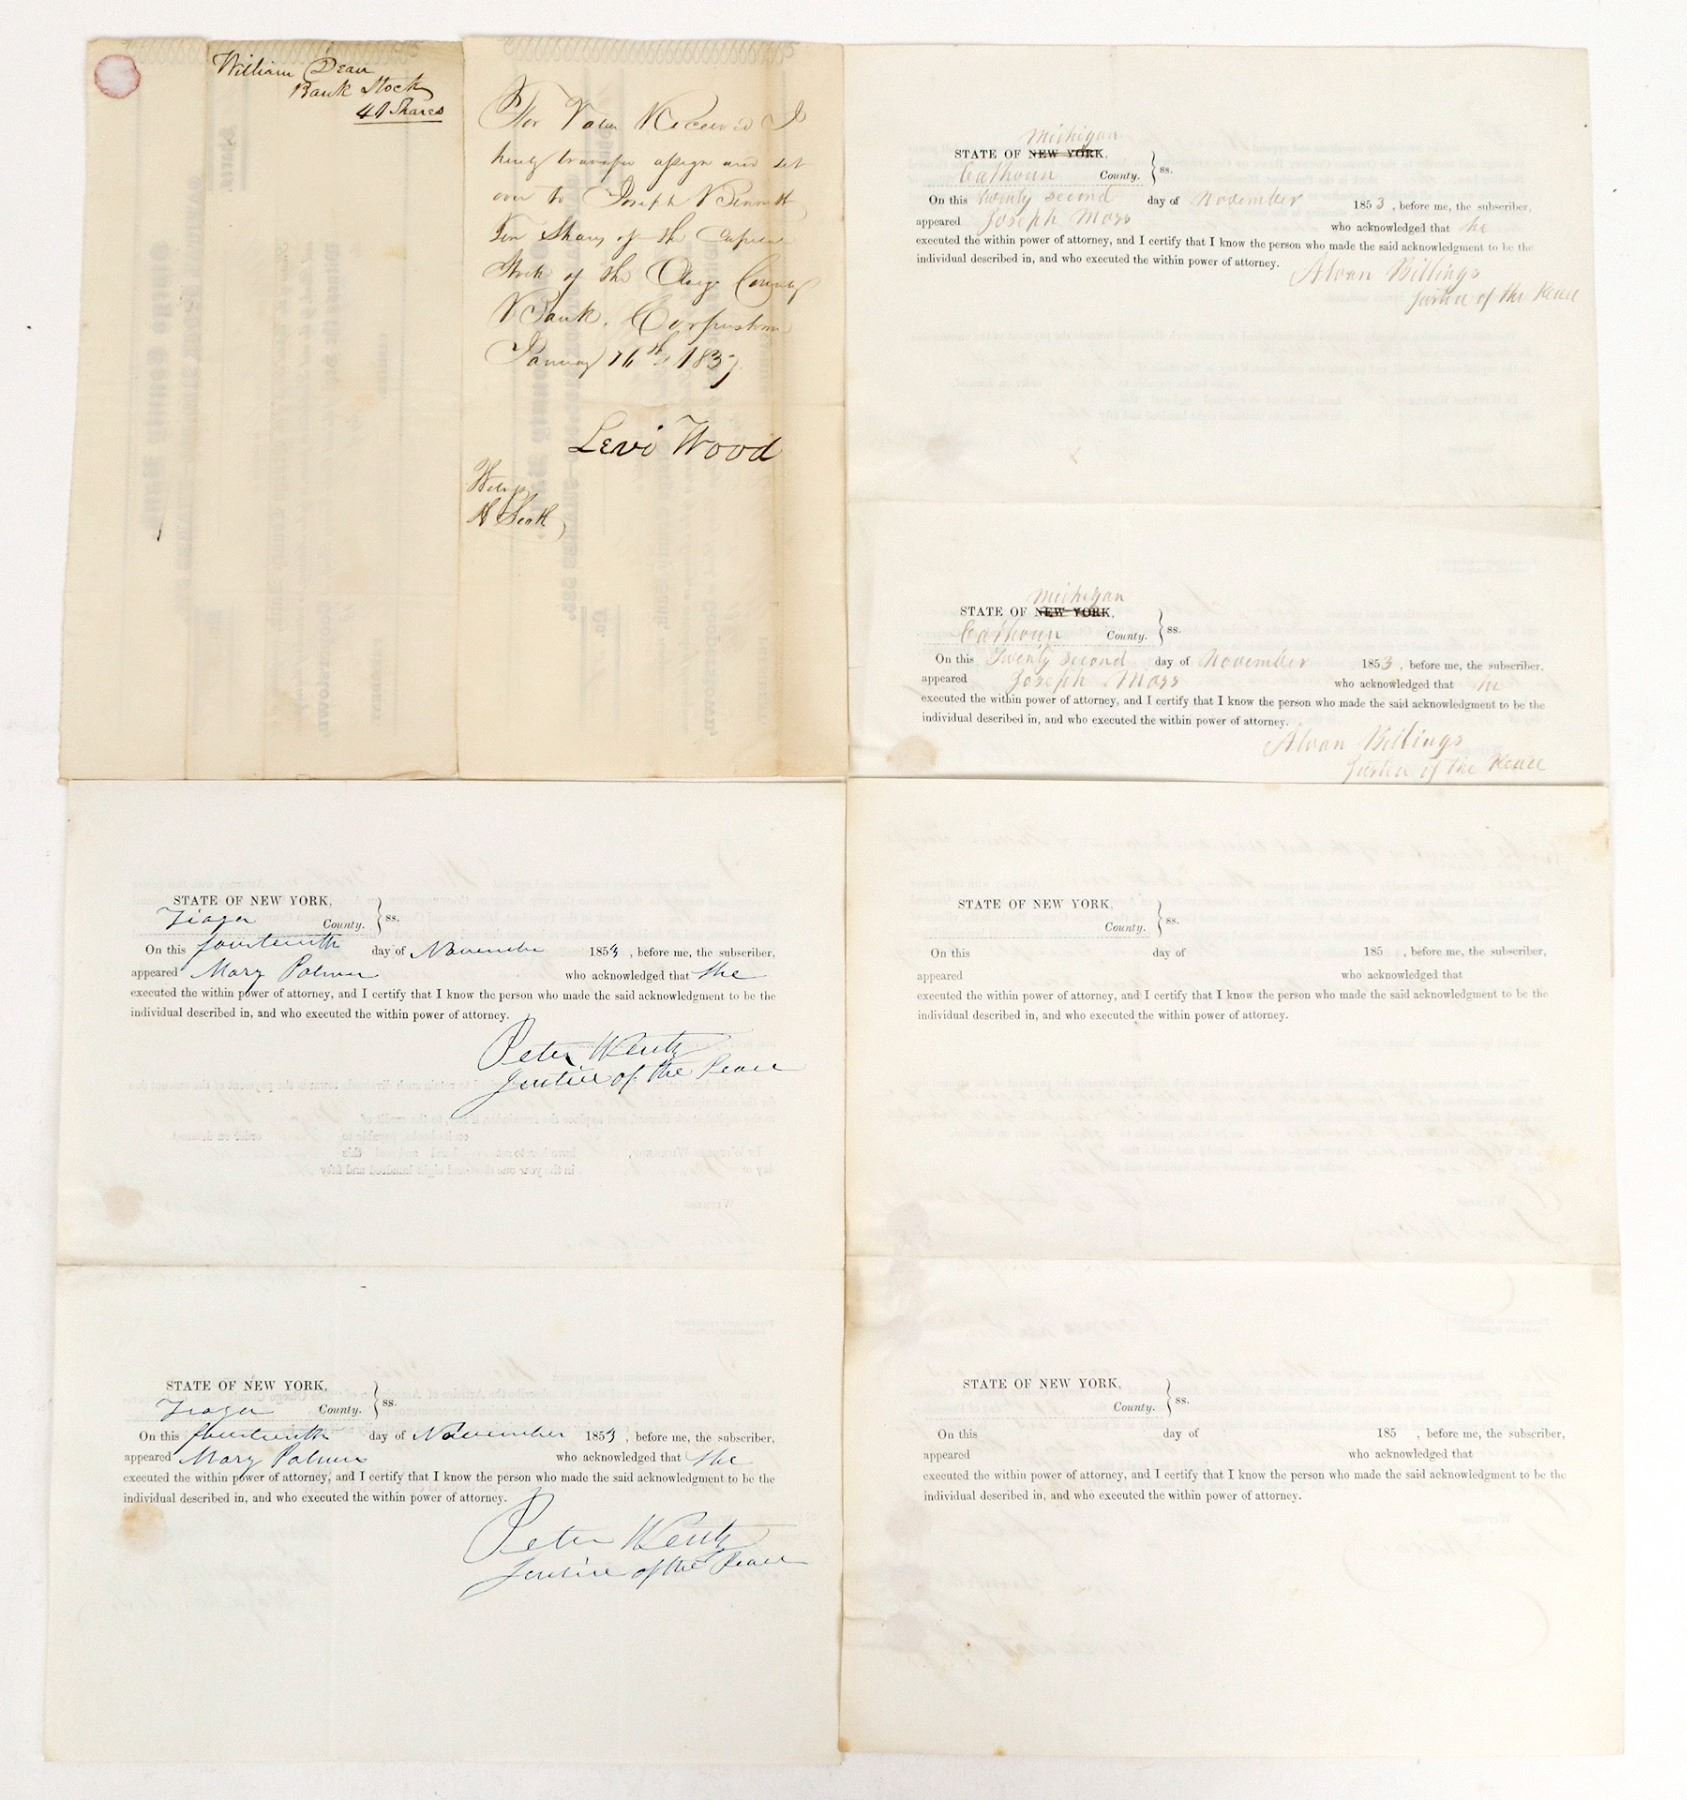 William Dean
Bank Stock
40 Shares
For Value Received I
herby transfer assign and set
over to Joseph Bennett
Ten Shares of the Capital
Stock of the Otsego County
Bank. Cooperstown
January 16th 1837
Levi Wood
H Scott
Michigan
STATE OF NEW YORK,
Calhoun County. } ss.
On this twenty second day of November 1853, before me, the subscriber,
appeared Joseph Moss who acknowledged that he
executed the within power of attorney, and I certify that I know the person who made the said acknowledgment to be the
individual described in, and who executed the within power of attorney.
Alvan Billings
Justice of the Peace
Michigan
STATE OF NEW YORK,
Calhoun County. } ss.
On this Twenty second day of November 1853, before me, the subscriber,
appeared Joseph Moss who acknowledged that he
executed the within power of attorney, and I certify that I know the person who made the said acknowledgment to be the
individual described in, and who executed the within power of attorney.
Alvan Billings
Justice of the Peace
STATE OF NEW YORK,
Tioga County. } ss.
On this fourteenth day of November 1853, before me, the subscriber,
appeared Mary Palmer who acknowledged that she
executed the within power of attorney, and I certify that I know the person who made the said acknowledgment to be the
individual described in, and who executed the within power of attorney.
Peter Wentz
Justice of the Peace
STATE OF NEW YORK,
Tioga County. } ss.
On this fourteenth day of November 1853, before me, the subscriber,
appeared Mary Palmer who acknowledged that she
executed the within power of attorney, and I certify that I know the person who made the said acknowledgment to be the
individual described in, and who executed the within power of attorney.
Peter Wentz
Justice of the Peace
STATE OF NEW YORK,
County. } ss.
On this day of 185 , before me, the subscriber,
appeared who acknowledged that
executed the within power of attorney, and I certify that I know the person who made the said acknowledgment to be the
individual described in, and who executed the within power of attorney.
STATE OF NEW YORK,
County. } ss.
On this day of 185 , before me, the subscriber,
appeared who acknowledged that
executed the within power of attorney, and I certify that I know the person who made the said acknowledgment to be the
individual described in, and who executed the within power of attorney.